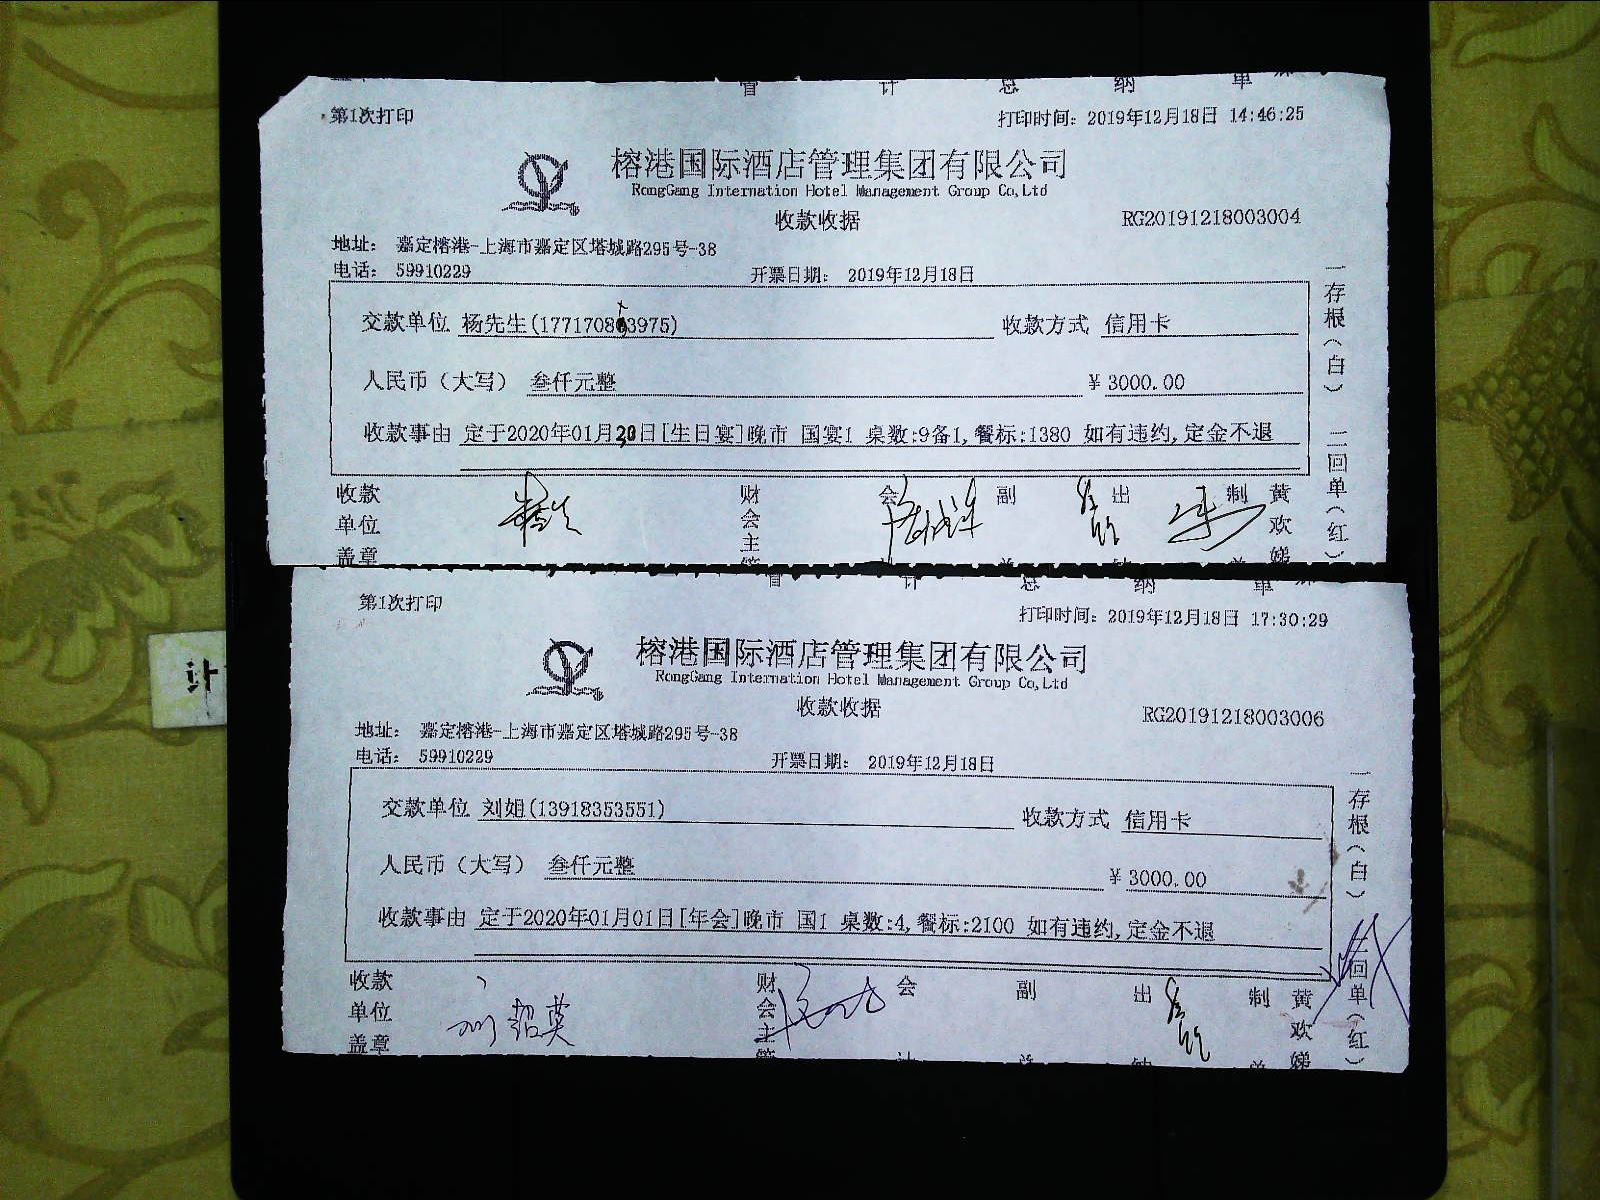 管 计 总 纳 单
第1次打印 打印时间：2019年12月18日 14:46:25
榕港国际酒店管理集团有限公司
RongGang Internation Hotel Management Group Co,Ltd
收款收据 RG20191218003004
地址： 嘉定榕港-上海市嘉定区塔城路295号-38
电话： 59910229 开票日期： 2019年12月18日
交款单位 杨先生(177170803975) 收款方式 信用卡
人民币（大写） 叁仟元整 ￥3000.00
收款事由 定于2020年01月20日[生日宴]晚市 国宴1 桌数:9备1,餐标:1380 如有违约,定金不退
一存根（白） 二回单（红）
收款 财 会 副 出 制 黄
单位 会 欢
盖章 主 娣
管 计 总 纳 单
第1次打印 打印时间：2019年12月18日 17:30:29
榕港国际酒店管理集团有限公司
RongGang Internation Hotel Management Group Co,Ltd
收款收据 RG20191218003006
地址： 嘉定榕港-上海市嘉定区塔城路295号-38
电话： 59910229 开票日期： 2019年12月18日
交款单位 刘姐(13918353551) 收款方式 信用卡
人民币（大写） 叁仟元整 ￥3000.00
收款事由 定于2020年01月01日[年会]晚市 国1 桌数:4,餐标:2100 如有违约,定金不退
一存根（白） 二回单（红）
收款 财 会 副 出 制 黄
单位 会 欢
盖章 主 娣
管 计 总 纳 单
计